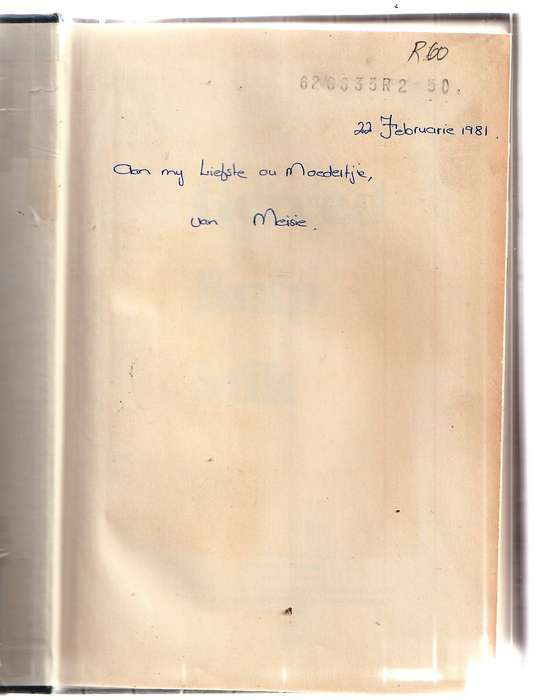 R.60
626633R2-50.
22 Februarie 1981.
Aan my Liefste ou Moedertjie,
van Meisie.